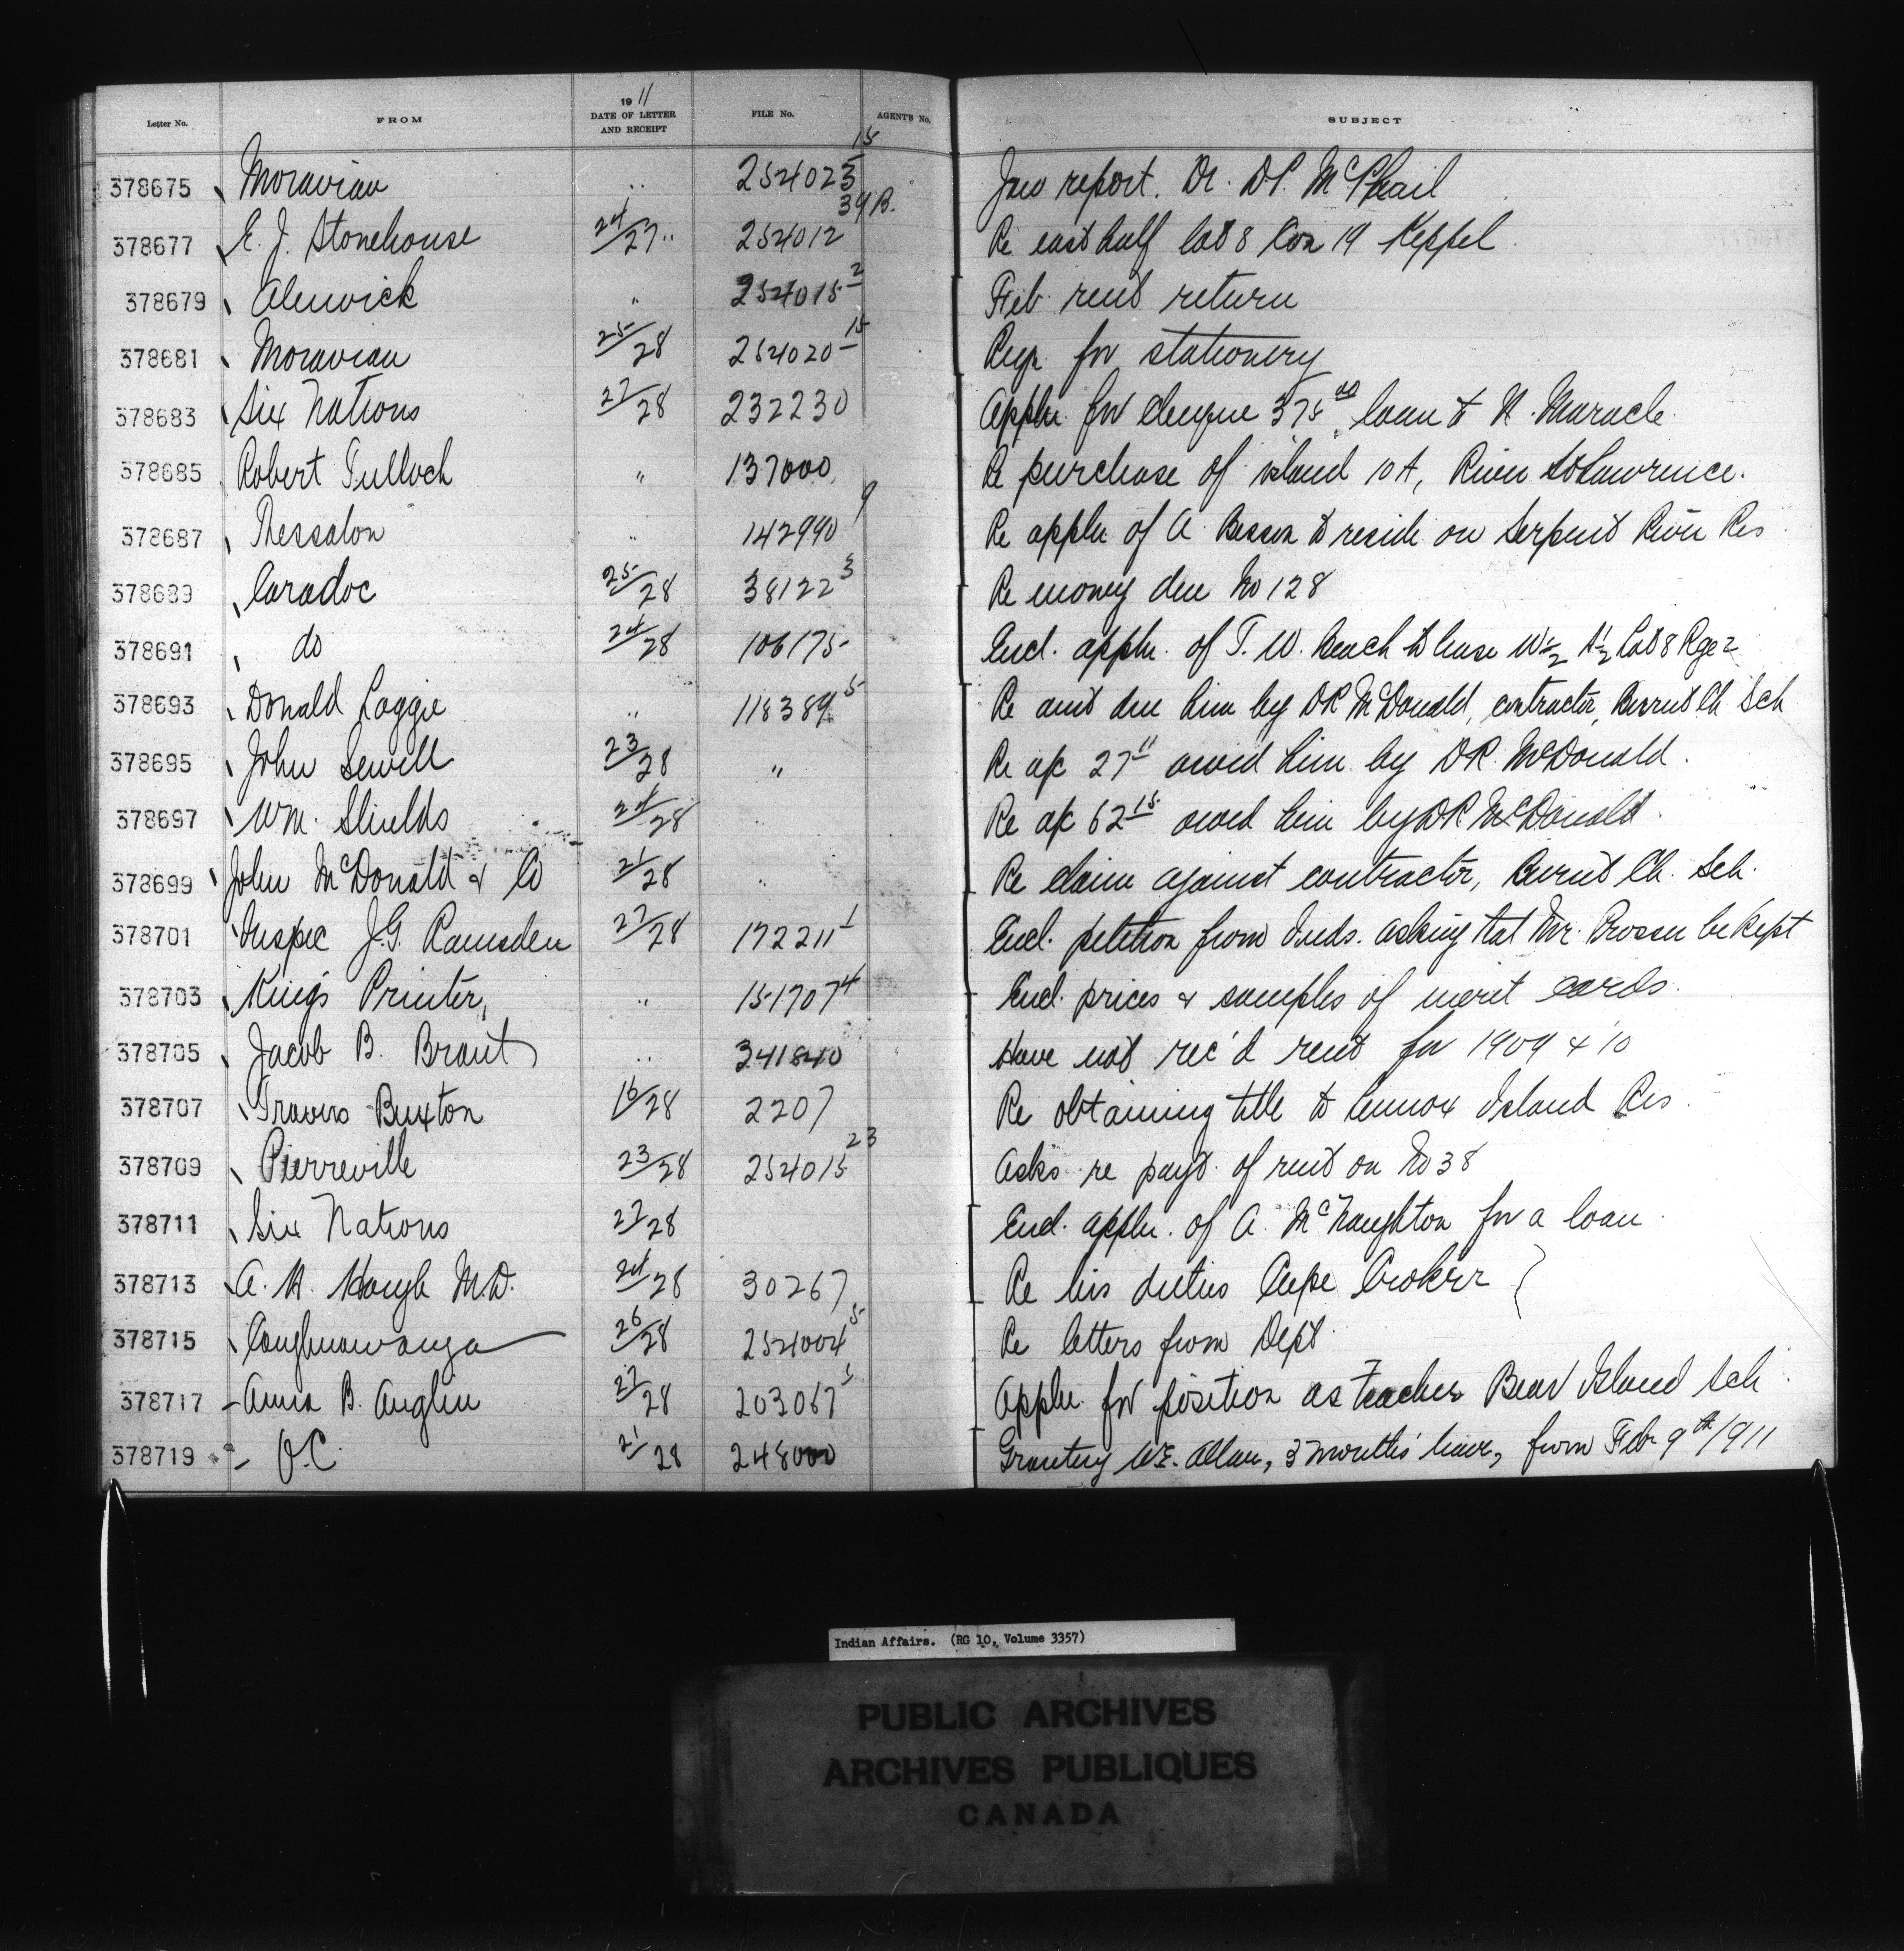 Letter No. FROM 1911 DATE OF LETTER AND RECEIPT FILE No. AGENT'S No. SUBJECT
378675 Moravian " 254023 15 Jan report. Dr. D.P. McPhail
378677 E. J. Stonehouse 24/27 " 254012 34B. Re east half lot 8 Con 19 Keppel
378679 Alnwick " 254015 2 Feb. rent return
378681 Moravian 25/28 254020 15 Reqn for stationery
378683 Six Nations 27/28 232230 Appln. for cheque 375 00 loan to N. Maracle.
378685 Robert Tulloch " 137000 Re purchase of island 10A, River St Lawrence.
378687 Thessalon " 142990 9 Re appln of A. to reside on Serpent River Res
378689 Caradoc 25/28 38122 3 Re money due No 128
378691 do 24/28 106175 Encl. appln. of T. W. Beach to lease W½ N½ Lot 8 Rge 2
378693 Donald Loggie " 118389 5 Re amt due him by DR McDonald, contractor, Burnt Ch Sch
378695 John Sewell 23/28 " Re a/c 27 11 owed him by DR. McDonald.
378697 Wm. Shields 24/28 " Re a/c 62 15 owed him by DR McDonald.
378699 John McDonald & Co 21/28 " Re claim against contractor, Burnt Ch. Sch.
378701 Inspec J.G. Ramsden 27/28 172211 1 Encl. petition from Inds. asking that Mr. be kept
378703 King's Printer, " 151707 4 Encl. prices & samples of merit cards.
378705 Jacob B. Brant " 341840 Have not rec'd rent for 1909 & '10
378707 Travers Buxton 16/28 2207 Re obtaining title to Lennox Island Res.
378709 Pierreville 23/28 254015 23 Asks re payt. of rent on No 38
378711 Six Nations 27/28 Encl. appln. of A. McNaughton for a loan.
378713 A. H. Hough M.D. 24/28 30267 Re his duties Cape Croker
378715 Caughnawaga 26/28 254004 5 Re letters from Dept.
378717 Anna B. Anglin 27/28 203067 Appln for position as teacher Bear Island Sch.
378719 O.C. 21/28 248000 Granting W.E. Allan, 3 months' leave, from Feb 9th/1911
Indian Affairs. (RG 10, Volume 3357)
PUBLIC ARCHIVES
ARCHIVES PUBLIQUES
CANADA